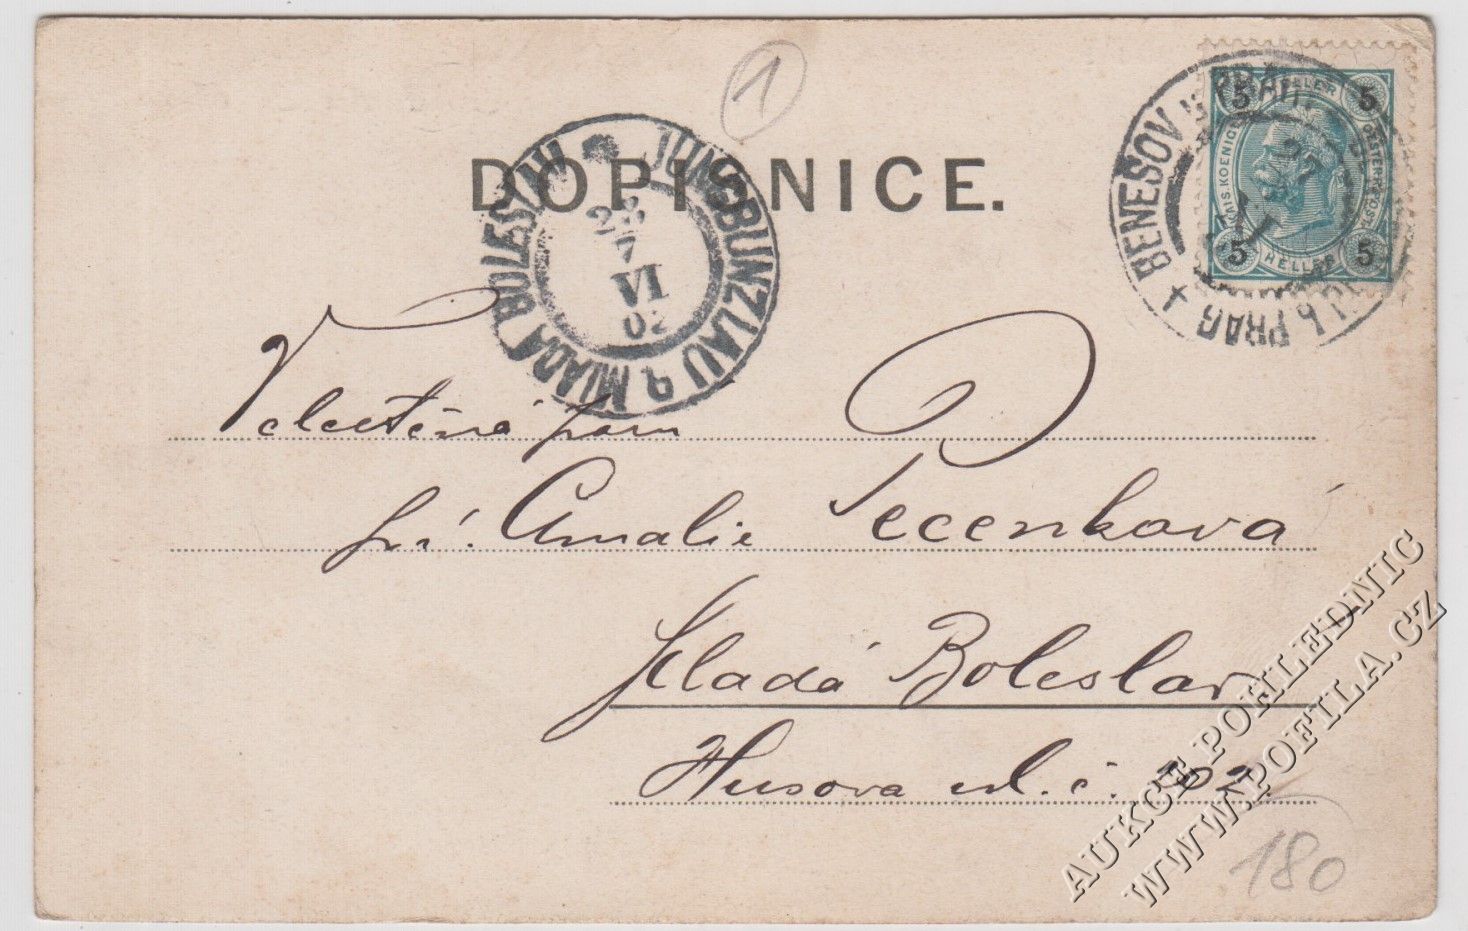 1
DOPISNICE.
JUNGBUNZLAU * MLADÁ BOLESLAV
27
VI
02
BENEŠOV U PRAHY
B. PRAG
27
5 HELLER 5
KAIS. KOENIGL.
OESTERR. POST
5 HELLER 5
Velectěná paní
Amalie Pecenková
Mladá Boleslav
Husova ul. č. 102
180
AUKCE POHLEDNIC
WWW.POFILA.CZ